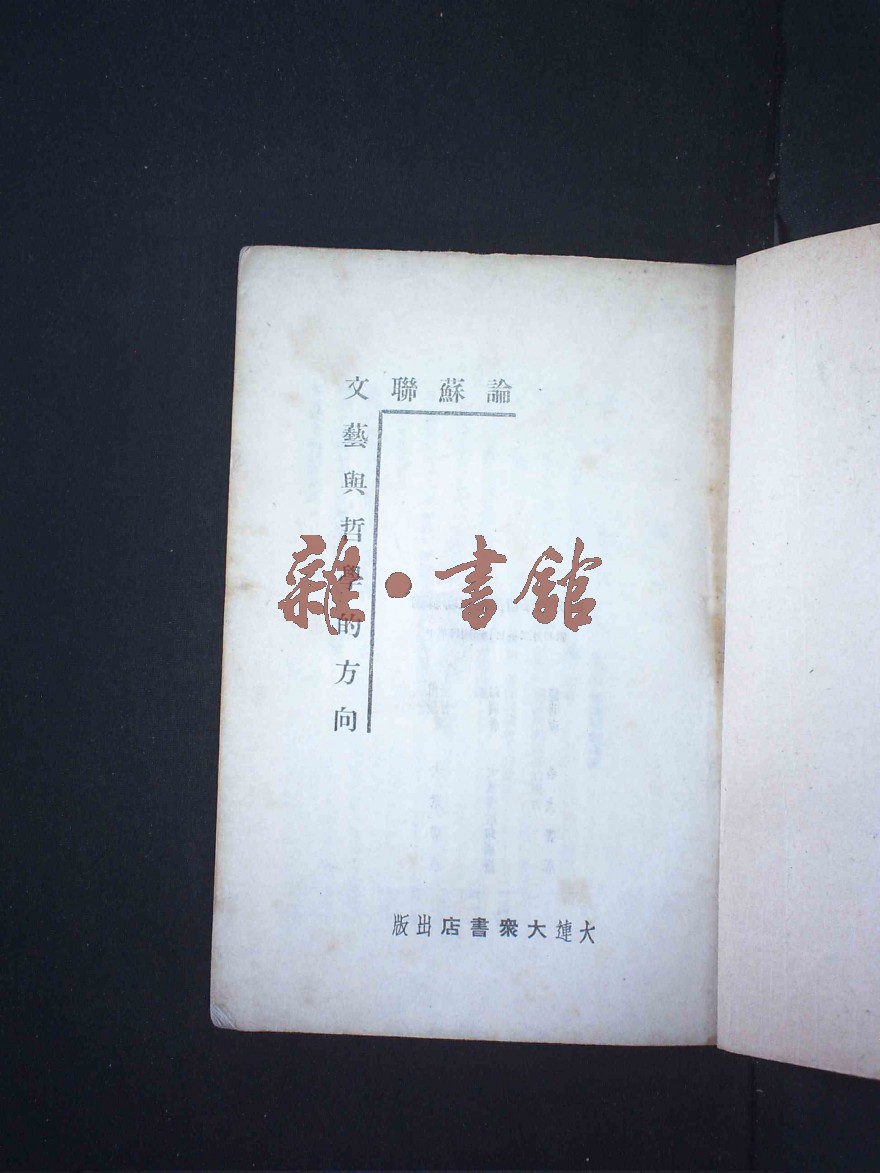 論蘇聯文藝與哲學的方向
雜·書館
大連大衆書店出版